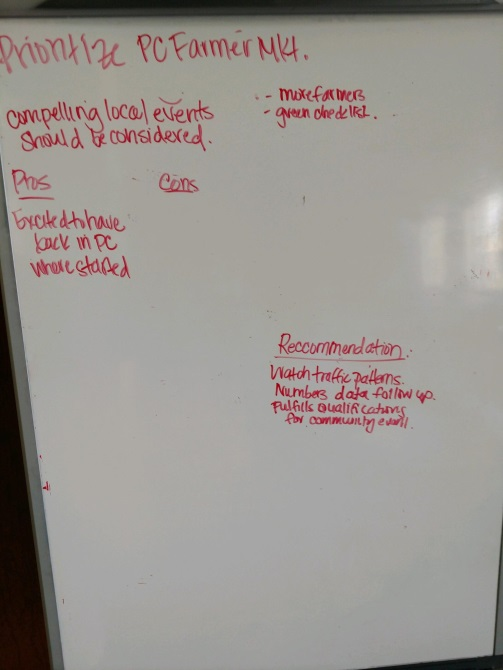 Prioritize PC Farmer Mkt.
compelling local events
should be considered.
- more farmers
- green checklist.
Pros
Cons
Excited to have
back in PC
where started
Reccommendation:
Watch traffic patterns.
Numbers data follow up.
Fulfills qualifications
for community event.